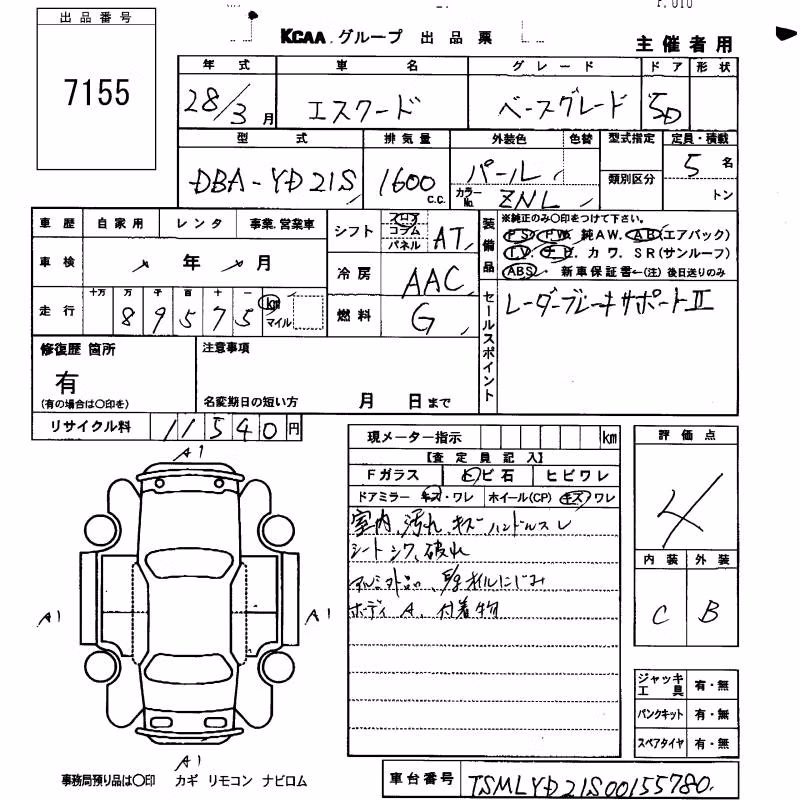 出品番号
7155
KCAA グループ 出品票
主催者用
年式 車名 グレード ドア 形状
28/3月 エスクード ベースグレード 5D
型式 排気量 外装色 色替 型式指定 定員・積載
DBA-YD21S 1600 C.C. パール 類別区分 5名
カラーNo. ZNL トン
車歴 自家用 レンタ 事業.営業車
シフト フロア コラム パネル AT
装備品 ※純正のみ○印をつけて下さい。
PS PW 純AW. AB(エアバック)
TV. ナビ. カワ. SR(サンルーフ)
ABS 新車保証書←(注) 後日送りのみ
車検 年 月
冷房 AAC
走行 十万 万 千 百 十 一
89575 km マイル
燃料 G
セールスポイント レーダーブレーキサポートII
修復歴 箇所
有
(有の場合は○印を)
注意事項
名変期日の短い方 月 日まで
リサイクル料 11540円
現メーター指示 km
【査定員記入】
Fガラス ヒビ石 ヒビワレ
ドアミラー キズ・ワレ ホイール(CP) キズワレ
室内 汚れ キズ ハンドルスレ
シート シワ、破れ
オイルにじみ
ボディ A、付着物
評価点
4
内装 外装
C B
A1
A1
A1
A1
ジャッキ工具 有・無
パンクキット 有・無
スペアタイヤ 有・無
事務局預り品は○印 カギ リモコン ナビロム
車台番号 TSMLYD21S00155780